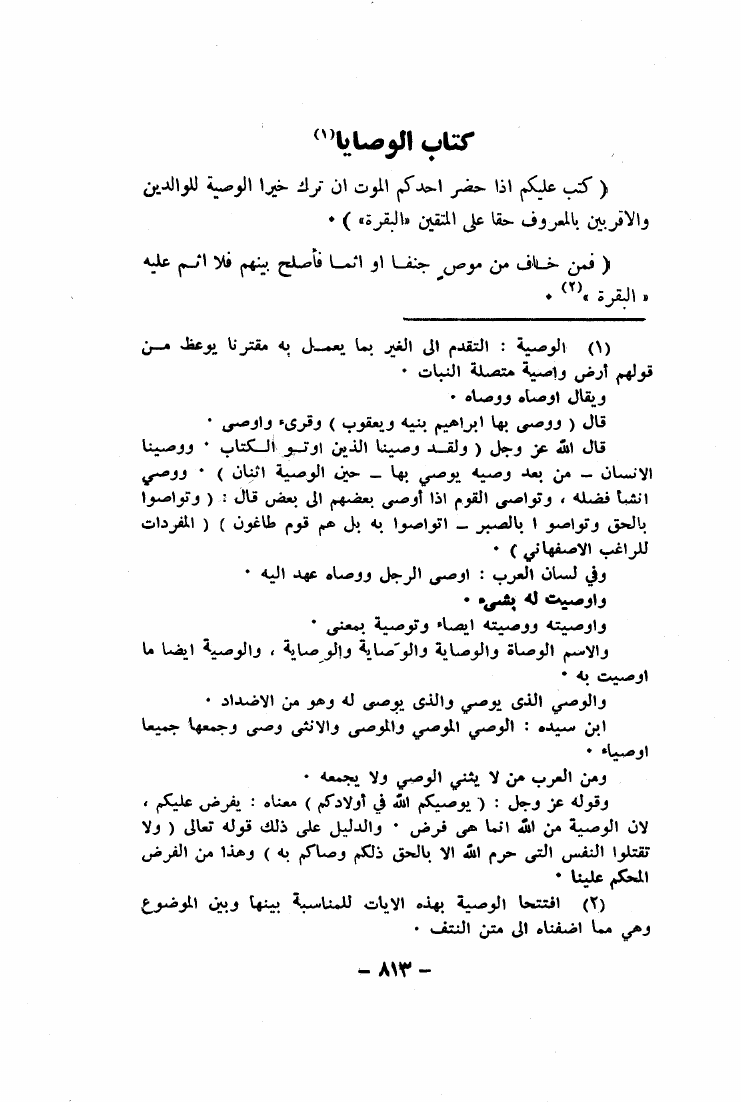 كتاب الوصايا(١)
( كتب عليكم اذا حضر احدكم الموت ان ترك خيرا الوصية للوالدين
والاقربين بالمعروف حقا على المتقين «البقرة» ) ٠
( فمن خاف من موصٍ جنفا او اثما فأصلح بينهم فلا اثم عليه
« البقرة »(٢) ٠
(١) الوصية : التقدم الى الغير بما يعمل به مقترنا يوعظ من
قولهم أرض واصية متصلة النبات ٠
ويقال اوصاه ووصاه ٠
قال ( ووصى بها ابراهيم بنيه ويعقوب ) وقرىء واوصى ٠
قال الله عز وجل ( ولقد وصينا الذين اوتو الكتاب ٠ ووصينا
الانسان – من بعد وصيه يوصي بها – حين الوصية اثنان ) ٠ ووصي
انشا فضله ، وتواصى القوم اذا أوصى بعضهم الى بعض قال : ( وتواصوا
بالحق وتواصو ا بالصبر – اتواصوا به بل هم قوم طاغون ) ( المفردات
للراغب الاصفهاني ) ٠
وفي لسان العرب : اوصى الرجل ووصاه عهد اليه ٠
واوصيت له بشيء ٠
واوصيته ووصيته ايصاء وتوصية بمعنى ٠
والاسم الوصاة والوصاية والوَصاية والوِصاية ، والوصية ايضا ما
اوصيت به ٠
والوصي الذى يوصي والذى يوصى له وهو من الاضداد ٠
ابن سيده : الوصي الموصي والموصى والانثى وصى وجمعها جميعا
اوصياء ٠
ومن العرب من لا يثني الوصي ولا يجمعه ٠
وقوله عز وجل : ( يوصيكم الله في أولادكم ) معناه : يفرض عليكم ،
لان الوصية من الله انما هى فرض ٠ والدليل على ذلك قوله تعالى ( ولا
تقتلوا النفس التى حرم الله الا بالحق ذلكم وصاكم به ) وهذا من الفرض
المحكم علينا ٠
(٢) افتتحا الوصية بهذه الايات للمناسبة بينها وبين الموضوع
وهي مما اضفناه الى متن النتف ٠
– ٨١٣ –